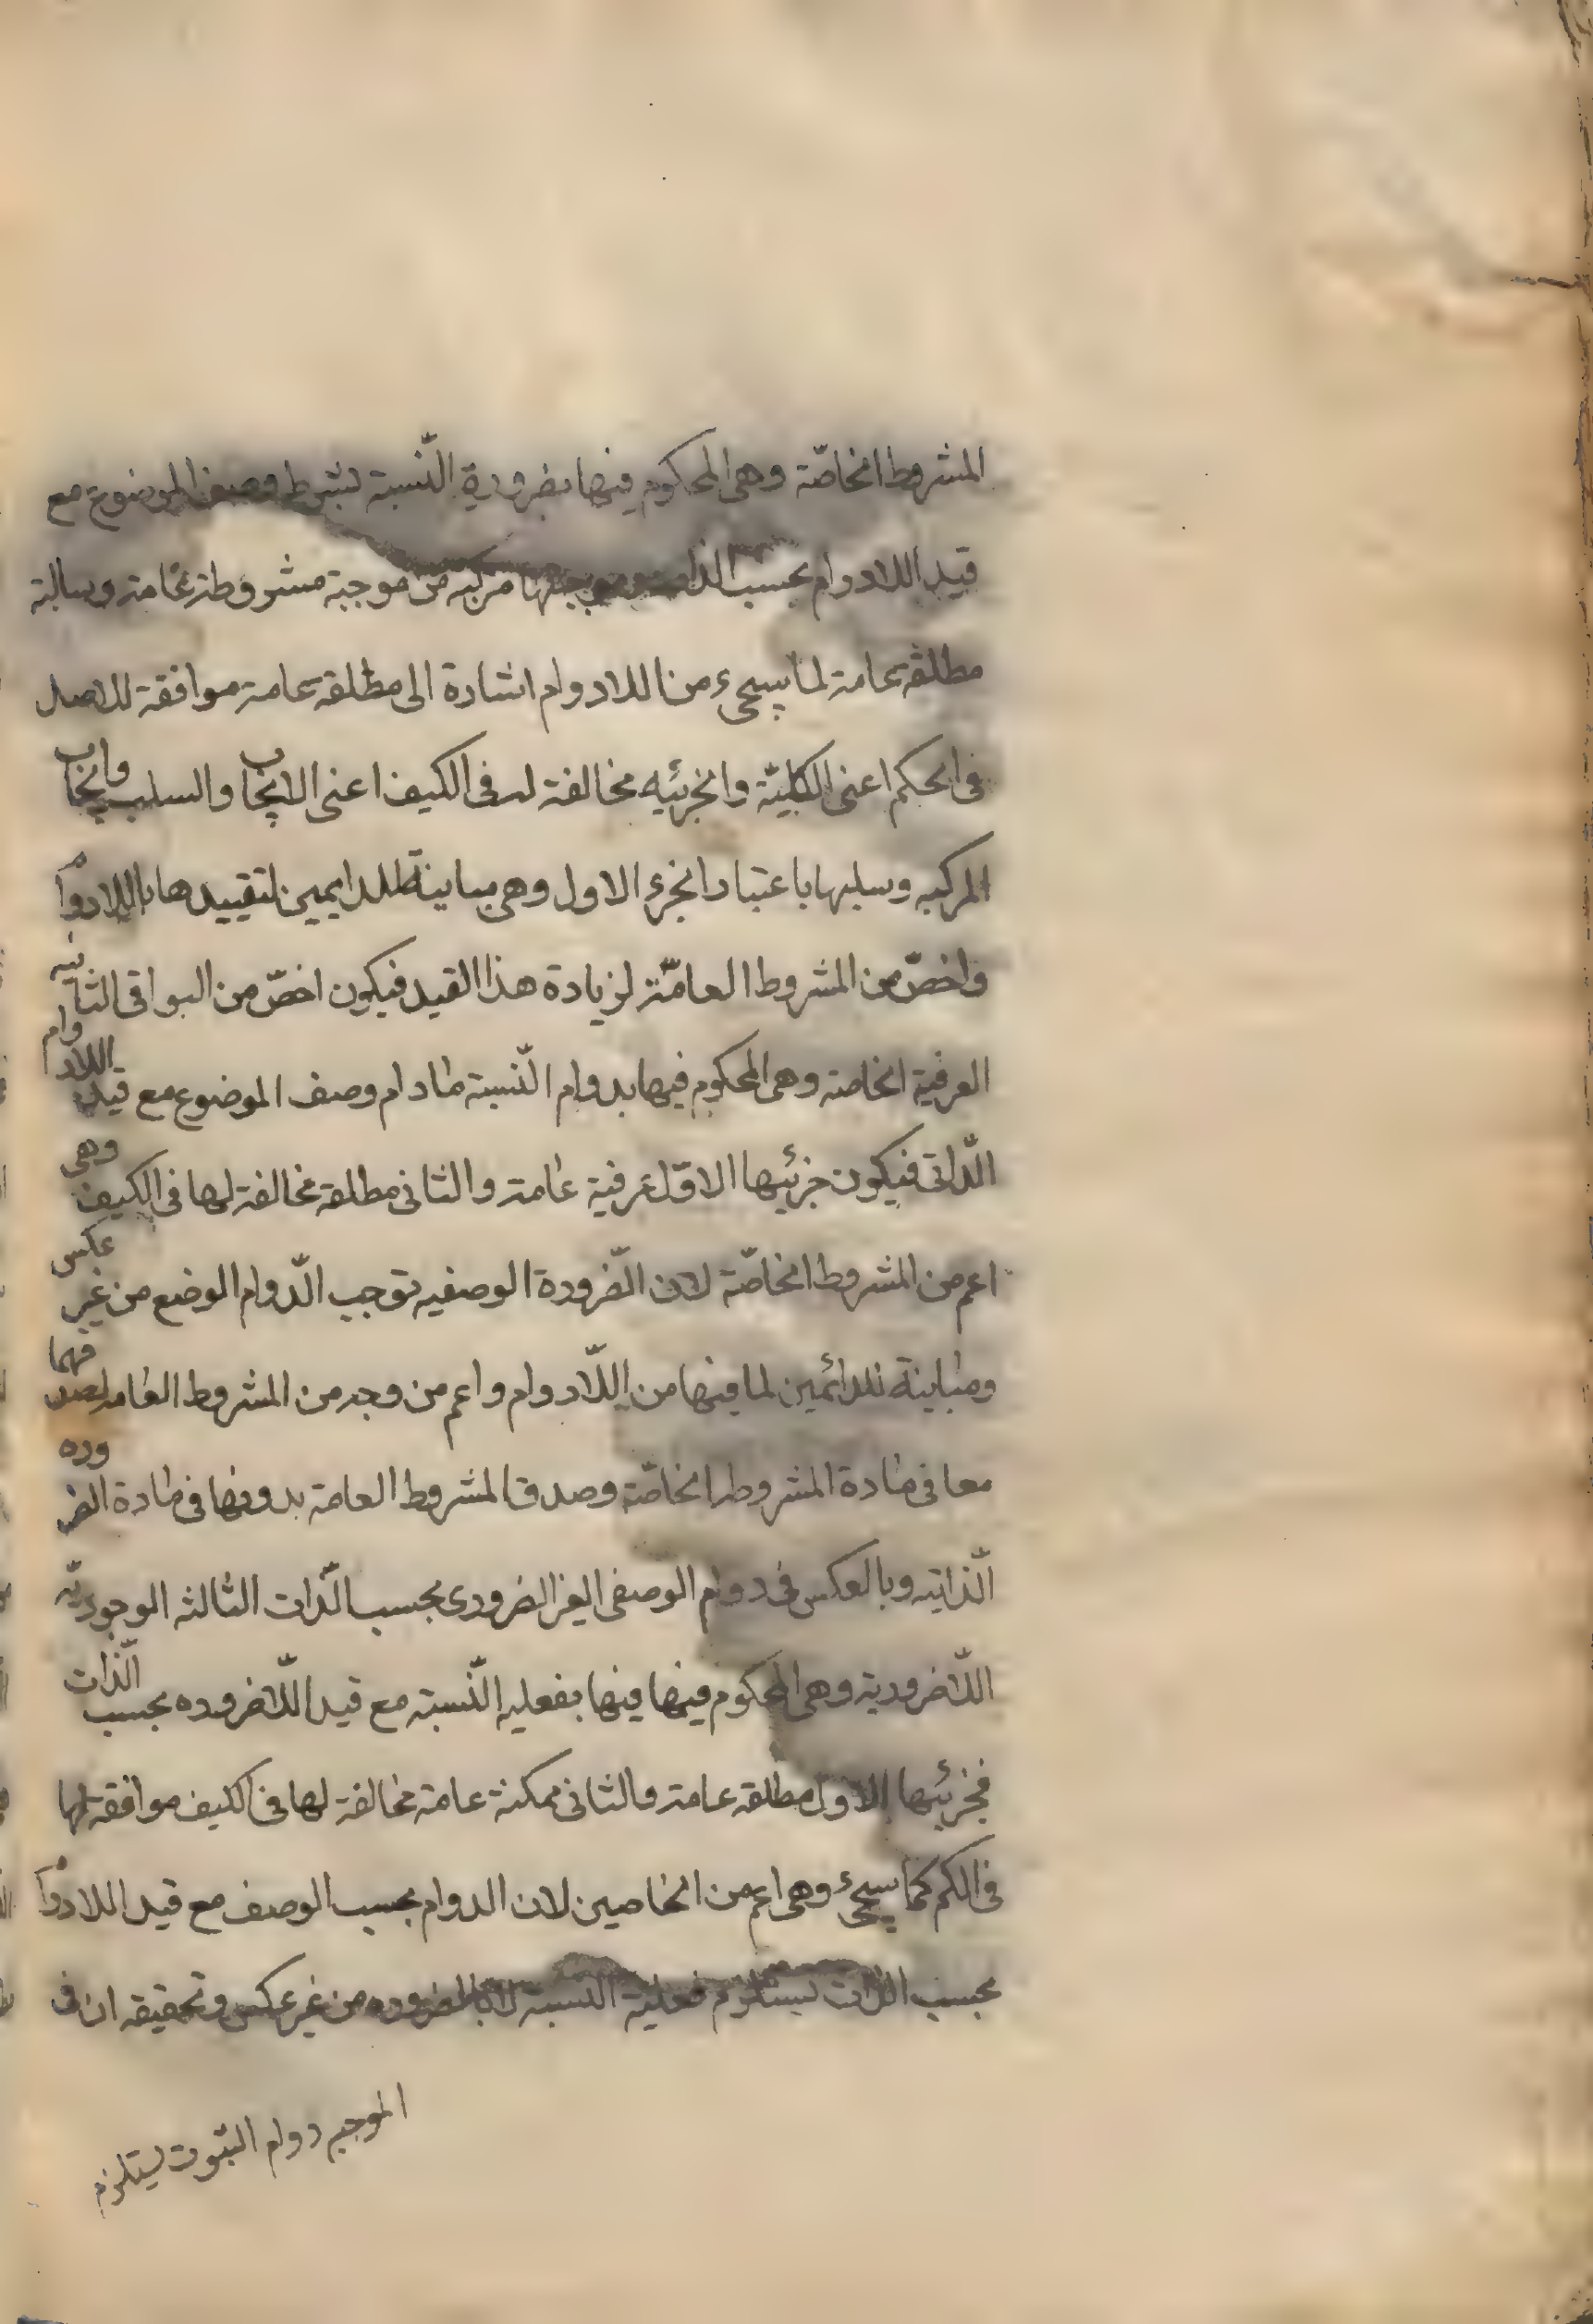 المشروطا الخاصّة وهى المحكوم فيها بضرورة النّسبة بشرط وصف الموضوع مع
قيد اللادوام بحسب الذات فموجبتها مركبه من موجبة مشروطة عامة وسالبة
مطلقة عامة لما سيجىء من اللادوام اشارة الى مطلقة عامة موافقة للاصل
فى الحكم اعنى الكليّة والجزئيه مخالفة له فى الكيف اعنى الايجاب والسلب وايجاب
المركبه وسلبها باعتبار الجزء الاول وهى مباينة للدايمين لتقييدها باللادوام
واخصّ من المشروطا العامّة لزيادة هذا القيد فيكون اخصّ من البواقى الثانيه
العرفية الخاصة وهى المحكوم فيها بدوام النّسبة مادام وصف الموضوع مع قيد اللادوام
الذّاتى فيكون جزئيها الاوّل عرفية عامة والثانى مطلقة مخالفة لها فى الكيف وهى
اعم من المشروطا الخاصّة لان الضّرورة الوصفيه توجب الدّوام الوضع من غير عكس
ومباينة للدائمين لما فيها من اللّادوام واعم من وجه من المشروط العامه لصدقهما
معا فى مادة المشروطا الخاصّة وصدق المشروط العامة بدونها فى مادة الضروره
الذّاتيه وبالعكس فى دوام الوصفى الغير الضرورى بحسب الذّات الثالثه الوجوديّه
اللّاضرورية وهى المحكوم فيها فيها بفعليه النّسبة مع قيد اللّاضروره بحسب الذّات
فجزئيها الاول مطلقه عامة والثانى ممكنة عامة مخالفة لها فى الكيف موافقة لها
فى الكم كما سيجىء وهى اعم من الخاصين لان الدوام بحسب الوصف مع قيد اللادوام
بحسب الذات يستلزم فعلية النسبة لا بالضروره من غير عكس وتحقيقه ان فى
الموجبه دوام الثبوت يستلزم